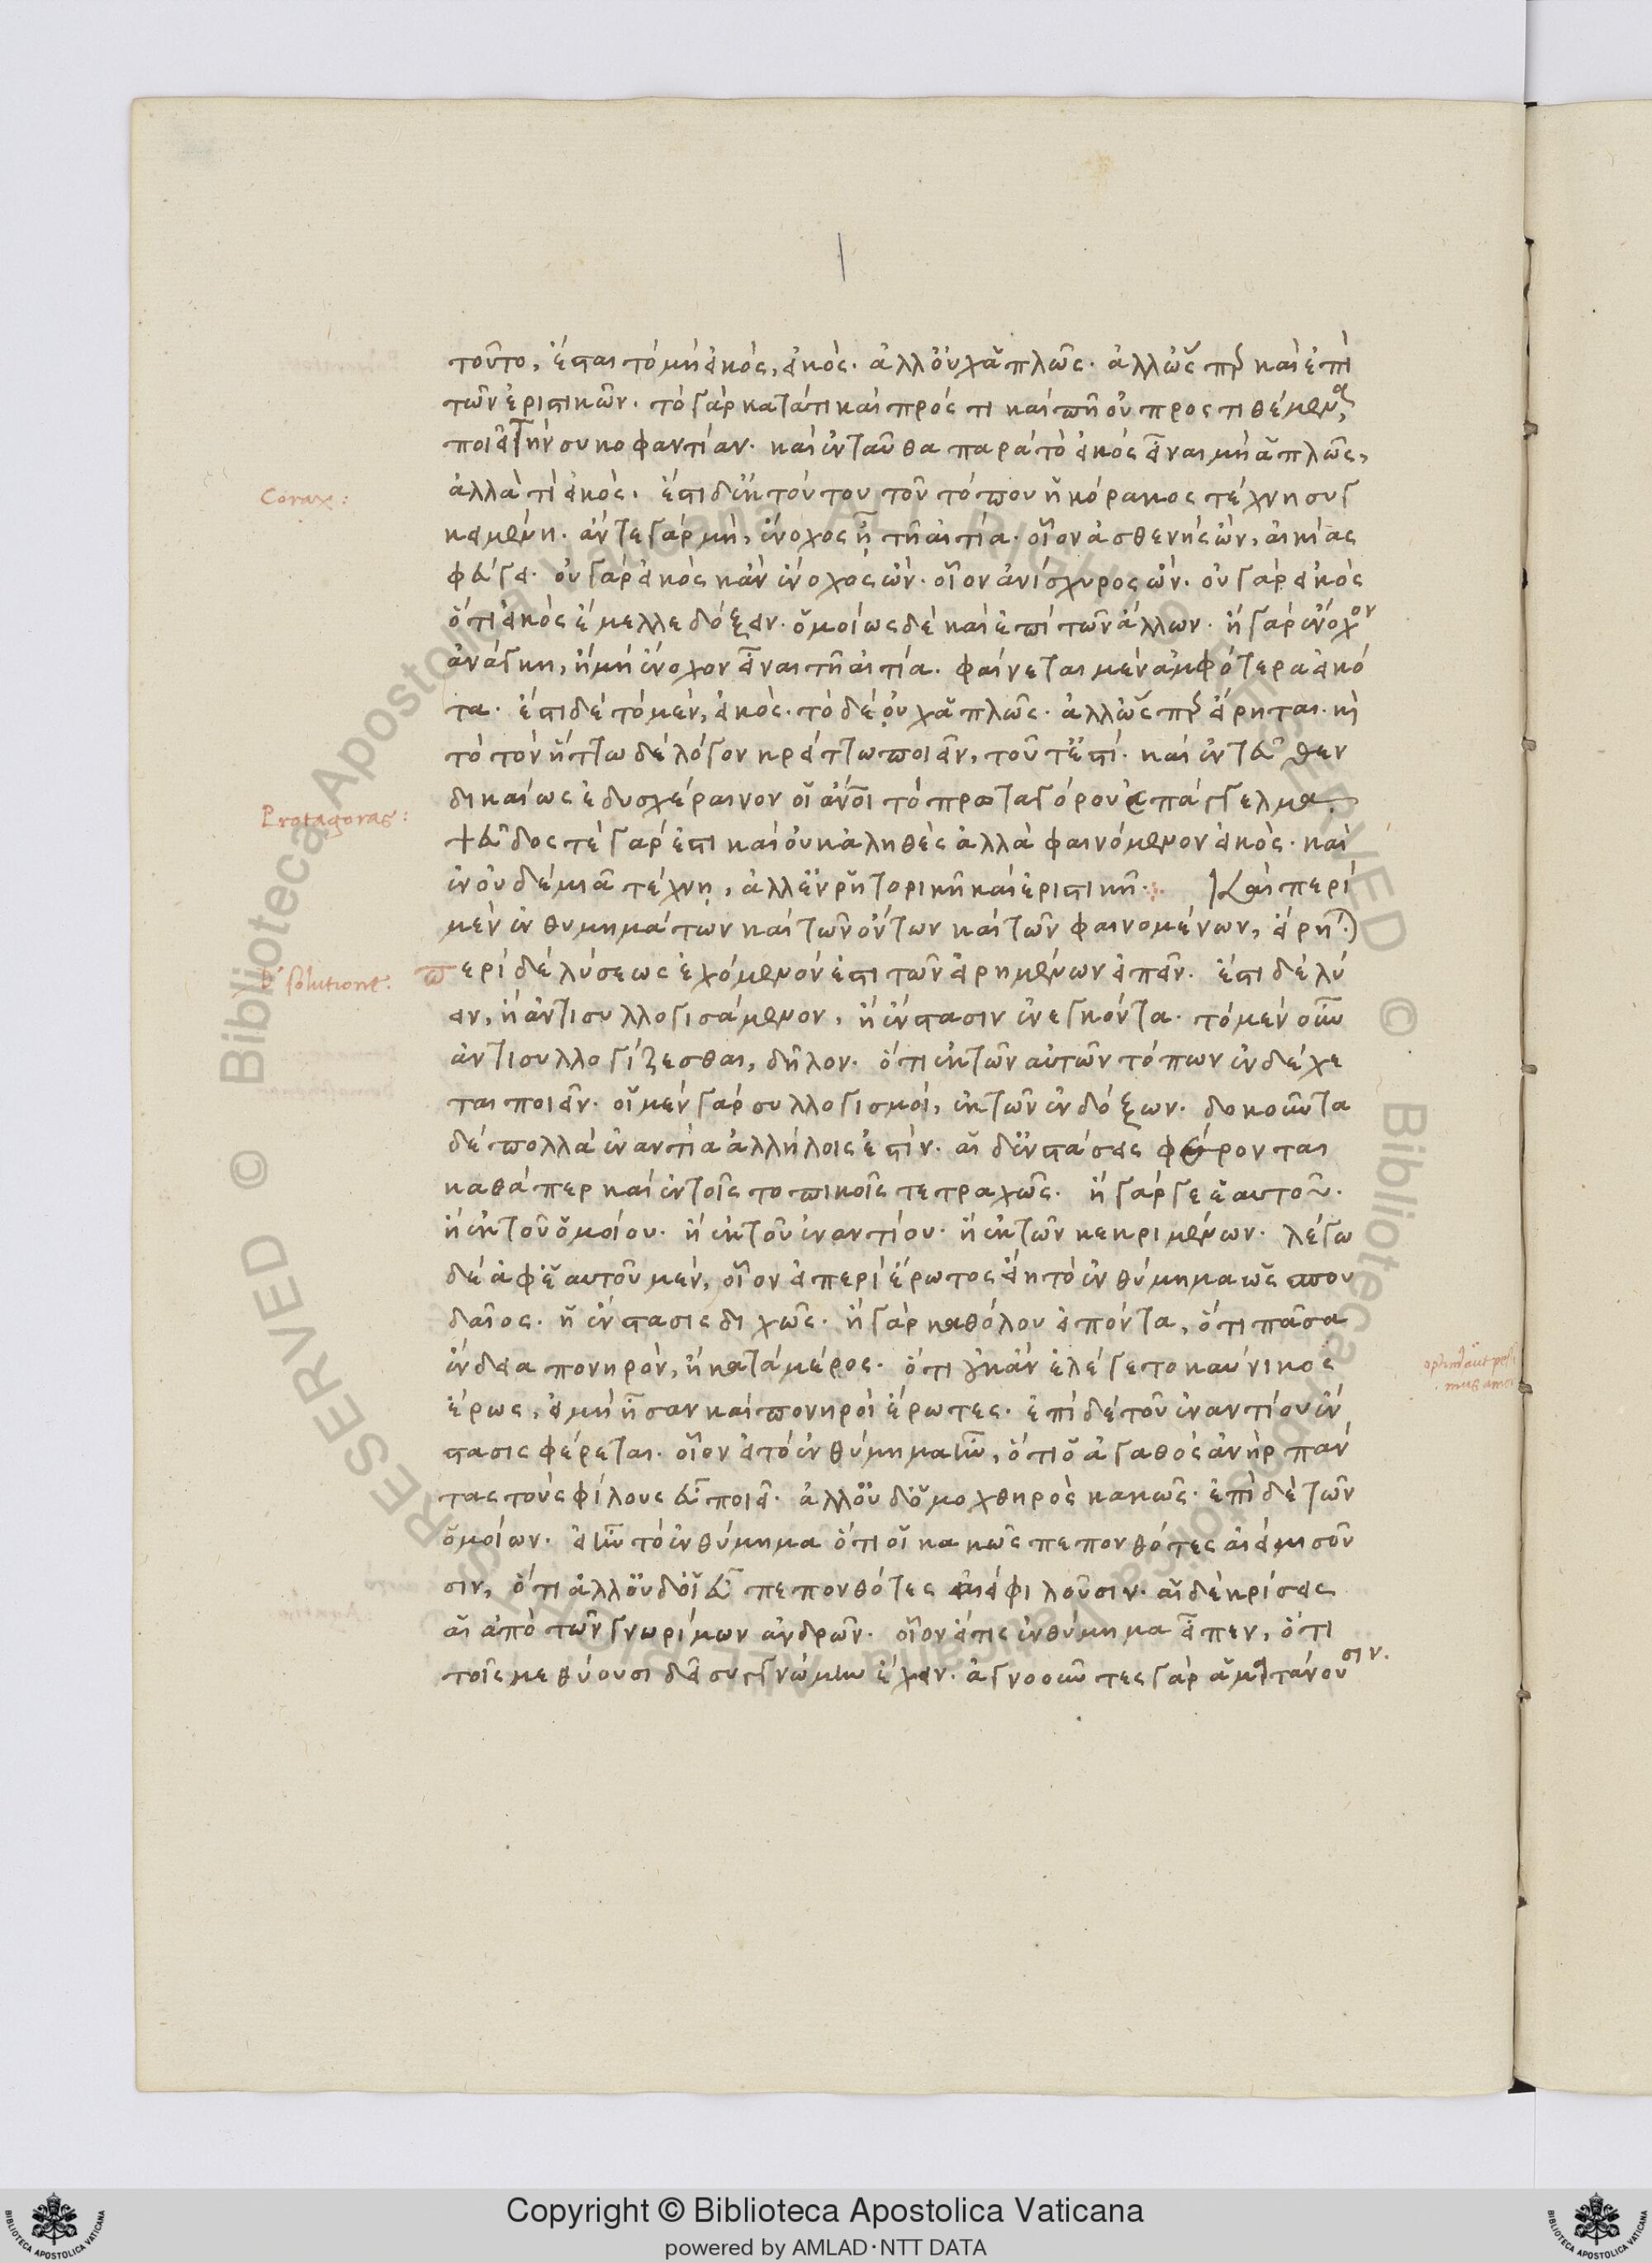 τοῦτο, ἔσται τὸ μὴ εἰκὸς, εἰκός. ἀλλ' οὐχ ἁπλῶς. ἀλλ' ὥσπερ καὶ ἐπὶ
τῶν ἐριστικῶν. τὸ γὰρ κατά τι καὶ πρός τι καὶ πῆ οὐ προστιθέμενα,
ποιεῖ τὴν συκοφαντίαν. καὶ ἐνταῦθα παρὰ τὸ εἰκὸς εἶναι μὴ ἁπλῶς,
Corax:
ἀλλὰ τὶ εἰκός. ἔστι δ' ἐκ τούτου τοῦ τόπου ἡ κόρακος τέχνη συγ
κειμένη. ἄν τε γὰρ μὴ, ἔνοχος ᾖ τῇ αἰτία. οἷον ἀσθενὴς ὢν, αἰκίας
φεύγει. οὐ γὰρ εἰκὸς κἂν ἔνοχος ὤν. οἷον ἂν ἰσχυρος ὤν. οὐ γὰρ εἰκὸς
ὅτι εἰκὸς ἔμελλε δόξειν. ὁμοίως δὲ καὶ ἐπὶ τῶν ἄλλων. ἢ γὰρ ἔνοχον
ἀνάγκη, ἢ μὴ ἔνοχον εἶναι τῇ αἰτία. φαίνεται μὲν ἀμφότερα εἰκό
τα. ἔστι δὲ τὸ μὲν, εἰκός. τὸ δὲ οὐχ ἁπλῶς. ἀλλ' ὥσπερ εἴρηται. καὶ
τὸ τὸν ἥττω δὲ λόγον κρείττω ποιεῖν, τοῦτ' ἔστί. καὶ ἐντεῦθεν
Protagoras:
δικαίως ἐδυσχέραινον οἱ ἄνοι τὸ πρωταγόρου ἐπάγγελμα.
ψεῦδος τὲ γάρ ἐστι καὶ οὐκ ἀληθὲς ἀλλὰ φαινόμενον εἰκός. καὶ
ἐν οὐδεμιᾶ τέχνῃ, ἀλλ' ἐν ῥητορικῇ καὶ ἐριστικῇ. Καὶ περὶ
μὲν ἐνθυμημάτων καὶ τῶν ὄντων καὶ τῶν φαινομένων, εἴρη
D' solutione.
περὶ δὲ λύσεως ἐχόμενόν ἐστι τῶν εἰρημένων εἰπεῖν. ἔστι δὲ λύ
ειν, ἢ ἀντισυλλογισάμενον, ἢ ἔνστασιν ἐνεγκόντα. τὸ μὲν οὖν
ἀντισυλλογίζεσθαι, δῆλον. ὅτι ἐκ τῶν αὐτῶν τόπων ἐνδέχε
ται ποιεῖν. οἱ μὲν γὰρ συλλογισμοὶ, ἐκ τῶν ἐνδόξων. δοκοῦντα
δὲ πολλὰ ἐναντία ἀλλήλοις ἐστίν. αἱ δ' ἐνστάσεις φέρονται
καθάπερ καὶ ἐν τοῖς τοπικοῖς τετραχῶς. ἢ γάρ γε ἑαυτοῦ.
ἢ ἐκ τοῦ ὁμοίου. ἢ ἐκ τοῦ ἐναντίου. ἢ ἐκ τῶν κεκριμένων. λέγω
δὲ ἀφ' ἑαυτοῦ μὲν, οἷον εἰ περὶ ἔρωτος εἴη τὸ ἐνθύμημα ὡς σπου
δαῖος. ἡ ἔνστασις διχῶς. ἢ γὰρ καθόλου εἰπόντα, ὅτι πᾶσα
ἔνδεια πονηρὸν, ἢ κατὰ μέρος. ὅτι οὐκ ἂν ἐλέγετο καύνικος
ἔρως, εἰ μὴ ἦσαν καὶ πονηροὶ ἔρωτες. ἐπὶ δὲ τοῦ ἐναντίου ἔν
στασις φέρεται. οἷον εἰ τὸ ἐνθύμημα ἦν, ὅτι ὁ ἀγαθὸς ἀνὴρ πάν
τας τοὺς φίλους εὖ ποιεῖ. ἀλλ' οὐδ' ὁ μοχθηρὸς κακῶς. ἐπὶ δὲ τῶν
ὁμοίων. εἰ ἦν τὸ ἐνθύμημα ὅτι οἱ κακῶς πεπονθότες αἰεὶ μισοῦ
σιν, ὅτι ἀλλ' οὐδ' οἱ εὖ πεπονθότες αἰεὶ φιλοῦσιν. αἱ δὲ κρίσεις
αἱ ἀπὸ τῶν γνωρίμων ἀνδρῶν. οἷον εἴ τις ἐνθύμημα εἶπεν, ὅτι
τοῖς μεθύουσι δεῖ συγγνώμην ἔχειν. ἀγνοοῦντες γὰρ ἁμαρτάνουσιν.
Copyright © Biblioteca Apostolica Vaticana
powered by AMLAD·NTT DATA